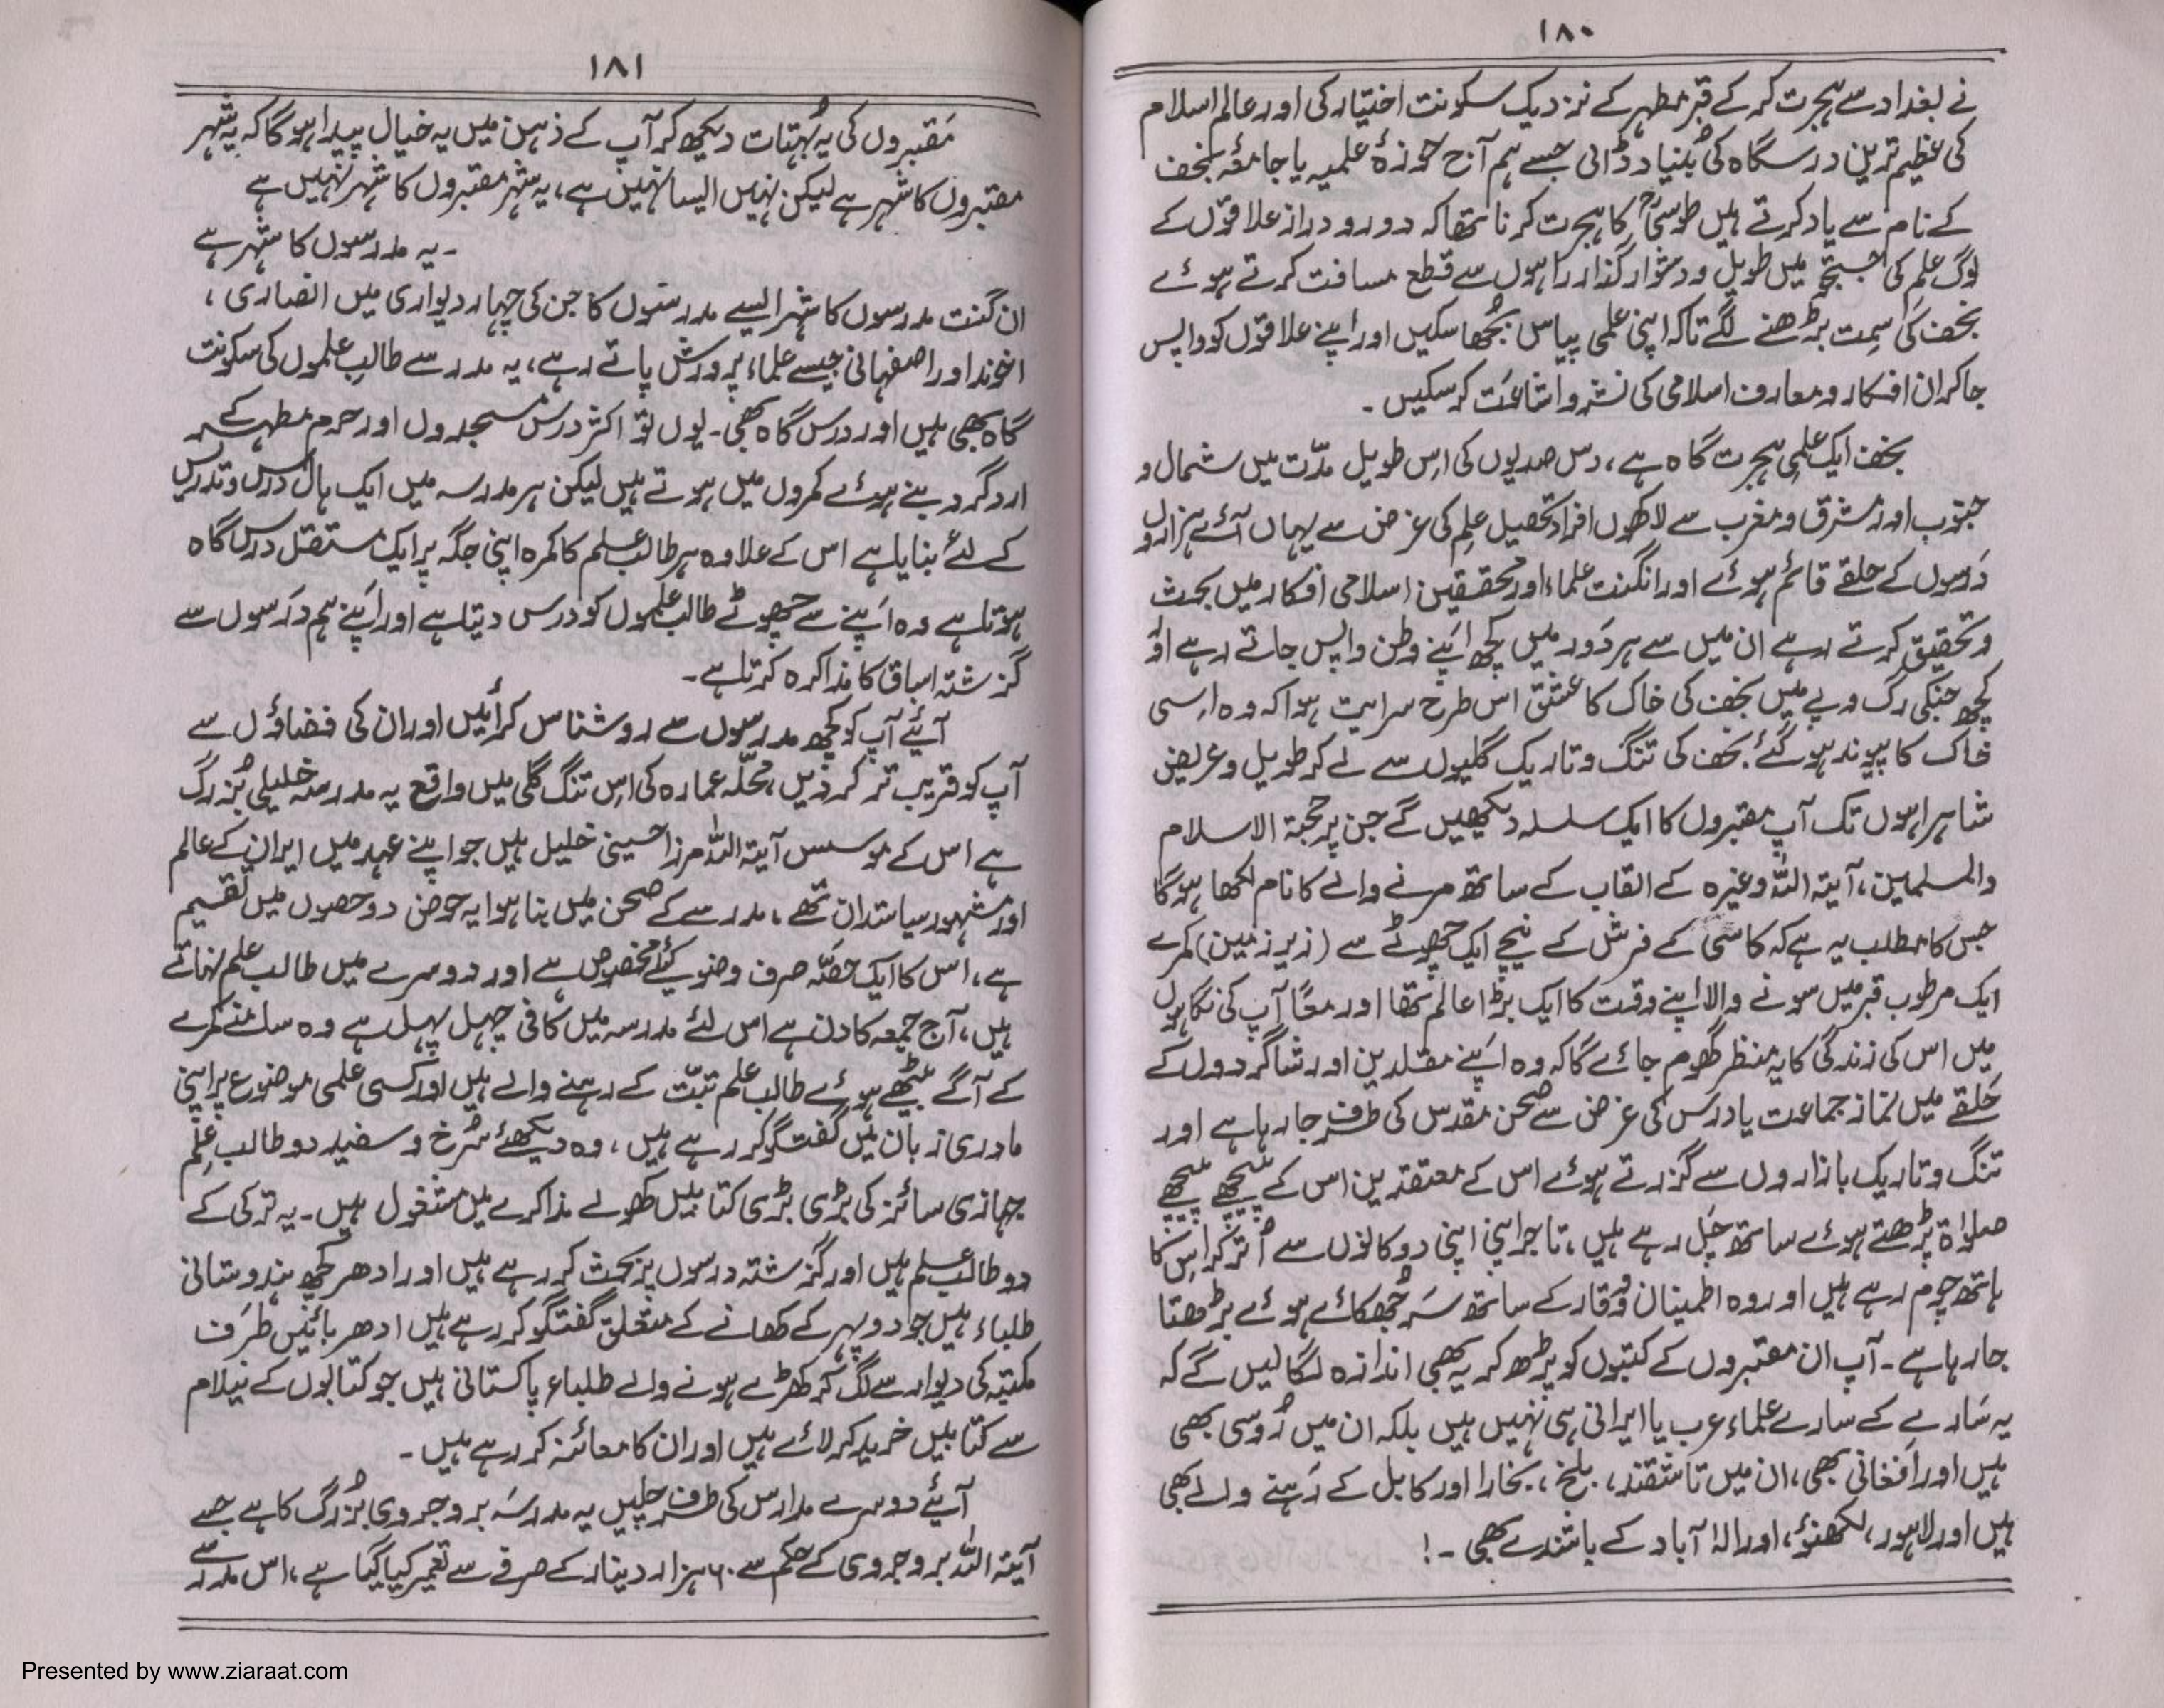 ۱۸۰
نے بغداد سے ہجرت کر کے قبر مطہر کے نزدیک سکونت اختیار کی اور عالم اسلام
کی عظیم ترین درسگاہ کی بُنیاد ڈالی جسے ہم آج حوزۂ علمیہ یا جامعۂ نجف
کے نام سے یاد کرتے ہیں طوسیؒ کا ہجرت کرنا تھا کہ دور و دراز علاقوں کے
لوگ علم کی جستجو میں طویل و دشوار گذار راہوں سے قطع مسافت کرتے ہوئے
نجف کی سِمت بڑھنے لگے تاکہ اپنی علمی پیاس بُجھا سکیں اور اپنے علاقوں کو واپس
جا کر ان افکار و معارف اسلامی کی نشر و اشاعَت کر سکیں ۔
نجف ایک علمی ہجرت گاہ ہے، دس صدیوں کی اِس طویل مدّت میں شمال و
جنوب اور مشرق و مغرب سے لاکھوں افراد تحصیل علم کی غرض سے یہاں آئے ہزاروں
دَرسوں کے حلقے قائم ہوئے اور انگنت علماء اور محققین اسلامی افکار میں بحث
و تحقیق کرتے رہے ان میں سے ہر دَور میں کچھ اپَنے وطن واپس جاتے رہے اور
کچھ جنکی رگ و پے میں نجف کی خاک کا عشق اس طرح سرایت ہوا کہ وہ اِسی
خاک کا پیوند ہو گئے نجف کی تنگ و تاریک گلیوں سے لے کر طویل و عریض
شاہراہوں تک آپ مقبروں کا ایک سلسلہ دیکھیں گے جن پر حجۃ الاسلام
والمسلمین، آیۃ اللہ وغیرہ کے القاب کے ساتھ مرنے والے کا نام لکھا ہوگا
جس کا مطلب یہ ہے کہ کاشی کے فرش کے نیچے ایک چھوٹے سے (زیر زمین) کمرے
ایک مرطوب قبر میں سونے والا اپنے وقت کا ایک بڑا عالم تھا اور معًا آپ کی نگاہوں
میں اس کی زندگی کا یہ منظر گھوم جائے گا کہ وہ اپَنے مقلدین اور شاگردوں کے
حَلقے میں نماز جماعت یا درَس کی غرض سے صحن مقدس کی طرف جا رہا ہے اور
تنگ و تاریک بازاروں سے گزرتے ہوئے اس کے معتقدین اس کے پیچھے پیچھے
صلواۃ پڑھتے ہوئے ساتھ چَل رہے ہیں، تاجر اپنی اپنی دوکانوں سے اُتر کر اس کا
ہاتھ چوم رہے ہیں اور وہ اطمینان و وقار کے ساتھ سَر جُھکائے ہوئے بڑھتا
جا رہا ہے ۔ آپ ان مقبروں کے کتبوں کو پڑھ کر یہ بھی اندازہ لگا لیں گے کہ
یہ سَارے کے سارے علماء عرب یا ایرانی ہی نہیں ہیں بلکہ ان میں رُوسی بھی
ہیں اور اَفغانی بھی، ان میں تاشقند، بلخ، بخارا اور کابل کے رَہنے والے بھی
ہیں اور لاہور، لکھنؤ، اور الہٰ آباد کے باشندے بھی ۔!
۱۸۱
مَقبروں کی یہ بُہتات دیکھ کر آپ کے ذہن میں یہ خیال پیدا ہوگا کہ یہ شہر
مقبروں کا شہر ہے لیکن نہیں ایسا نہیں ہے، یہ شہر مقبروں کا شہر نہیں ہے
۔ یہ مدرسوں کا شہر ہے
ان گنت مدرسوں کا شہر ایسے مدرسوں کا جن کی چہار دیواری میں انصاری،
اخوند اور اصفہانی جیسے علماء پرورش پاتے رہے، یہ مدرسے طالب علموں کی سکونت
گاہ بھی ہیں اور درس گاہ بھی ۔ یوں تو اکثر درس مسجدوں اور حرم مطہر کے
ارد گرد بنے ہوئے کمروں میں ہوتے ہیں لیکن ہر مدرسہ میں ایک ہال درس و تدریس
کے لئے بنایا ہے اس کے علاوہ ہر طالب علم کا کمرہ اپنی جگہ پر ایک مستقل درس گاہ
ہوتا ہے وہ اَپنے سے چھوٹے طالب علموں کو درس دیتا ہے اور اَپنے ہم دَرسوں سے
گزشتہ اسباق کا مذاکرہ کرتا ہے ۔
آیئے آپ کو کچھ مدرسوں سے روشناس کرائیں اور ان کی فضاؤں سے
آپ کو قریب تر کر دیں، محلّہ عمارہ کی اِس تنگ گلی میں واقع یہ مدرسہ خلیلی بُزرگ
ہے اس کے موسس آیۃ اللہ مرزا حسینی خلیل ہیں جو اپنے عہد میں ایران کے عالم
اور مشہور سیاستدان تھے، مدرسے کے صحن میں بنا ہوا یہ حوض دو حصوں میں تقسیم
ہے، اس کا ایک حصّہ صرف وضو کیلئے مخصوص ہے اور دوسرے میں طالب علم نہاتے
ہیں، آج جمعہ کا دن ہے اس لئے مدرسہ میں کافی چہل پہل ہے وہ سامنے کمرے
کے آگے بیٹھے ہوئے طالب علم تبّت کے رہنے والے ہیں اور کسی علمی موضوع پر اپنی
مادری زبان میں گفتگو کر رہے ہیں، وہ دیکھئے سُرخ و سفید دو طالب عِلم
جہازی سائز کی بڑی بڑی کتابیں کھولے مذاکرے میں مشغول ہیں ۔ یہ ترکی کے
دو طالب علم ہیں اور گزشتہ درسوں پر بحث کر رہے ہیں اور ادھر کچھ ہندوستانی
طلباء ہیں جو دوپہر کے کھانے کے متعلق گفتگو کر رہے ہیں ادھر بائیں طرَف
مکتبہ کی دیوار سے لگ کر کھڑے ہونے والے طلباء پاکستانی ہیں جو کتابوں کے نیلام
سے کتابیں خرید کر لائے ہیں اور ان کا معائنہ کر رہے ہیں ۔
آیئے دوسرے مدارس کی طرف چلیں یہ مدرسَہ بروجروی بُزرگ کا ہے جسے
آیۃ اللہ بروجروی کے حکم سے ۶۰ ہزار دینار کے صرفے سے تعمیر کیا گیا ہے، اس مدرسے
Presented by www.ziaraat.com